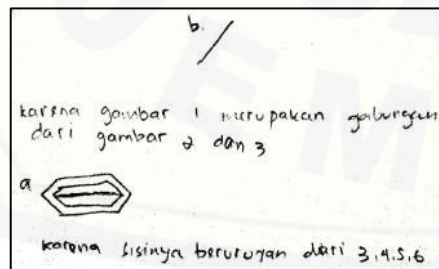 b.
karena gambar 1 merupakan gabungan
dari gambar 2 dan 3
a
karena sisinya berurutan dari 3,4,5,6